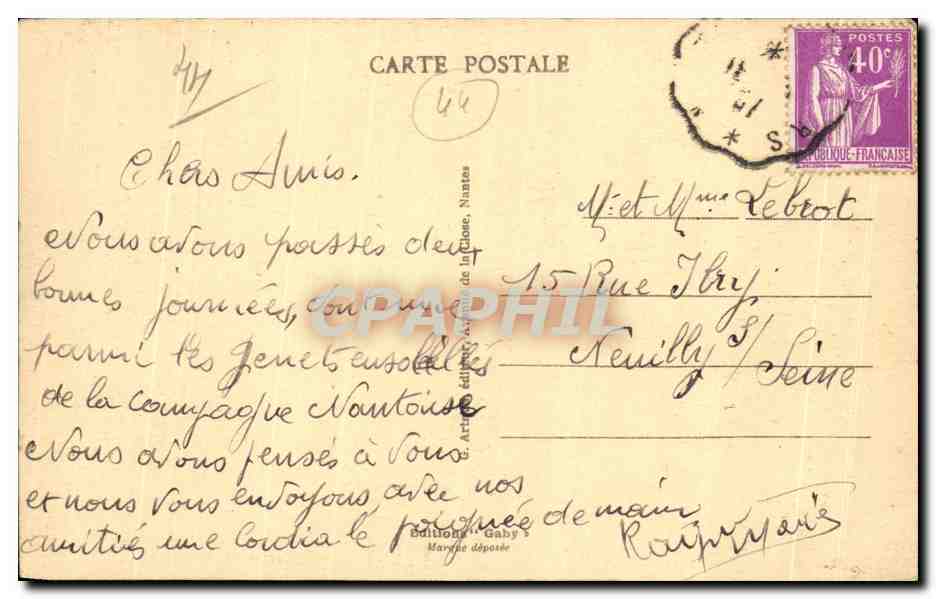 CARTE POSTALE
44
44
POSTES
40c
RÉPUBLIQUE-FRANÇAISE
Chers Amis.
Nous avons passés deux
bonnes journées, dont une
parmi les genets ensoleillés
de la campagne Nantaise
Nous avons pensés à vous
et nous vous envoyons avec nos
amitiés une cordiale poignée de main
Mr et Mme Lebrot
15 Rue Ibry
Neuilly s/ Seine
édit Avenue de la Close, Nantes
Editions "Gaby"
Marque déposée
CPAPHIL